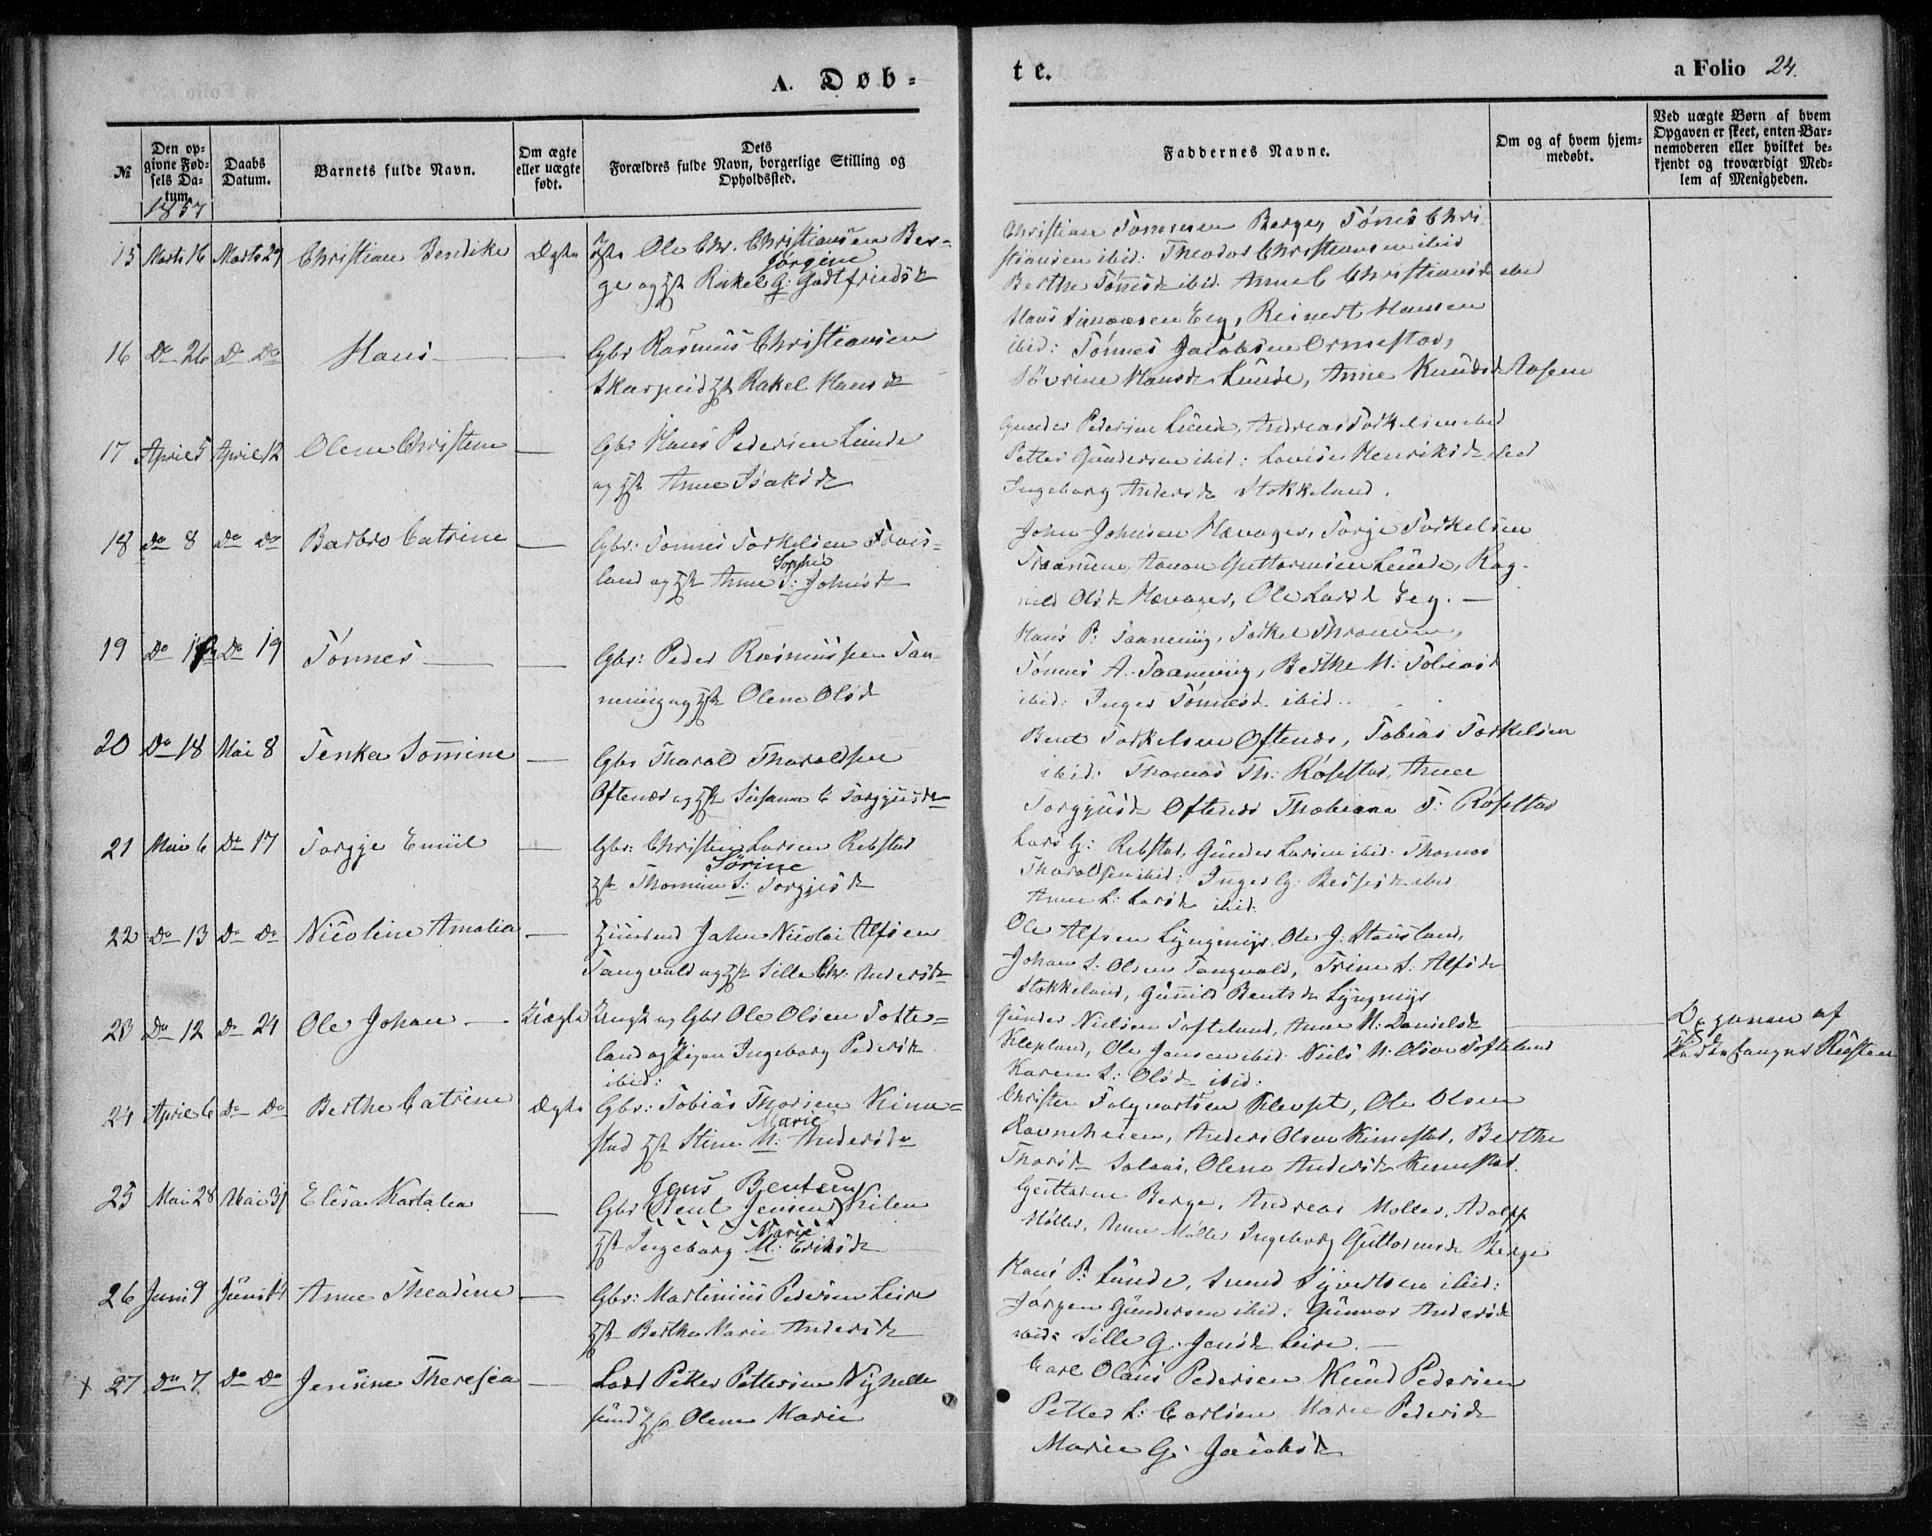 A. Døb-
te.
a Folio 24.
№
Den op-
givne Fød-
sels Da-
tum.
1857
Daabs
Datum.
Barnets fulde Navn.
Om ægte
eller uægte
født.
Dets
Forældres fulde Navn, borgerlige Stilling og
Opholdssted.
Faddernes Navne.
Om og af hvem hjem-
medøbt.
Ved uægte Børn af hvem
Opgaven er skeet, enten Bar-
nemoderen eller hvilket be-
kjendt og troværdigt Med-
lem af Menigheden.
15 Marts 16 Marts 29 Christian Bendike Ægte Ole Chr. Christiansen Ber-
Jørgine
ge og Rakel G: Godtfriedsd
Christian Tønnesen Berge, Tønnes Chri
stiansen ibid: Theodor Christiansen ibid
Berthe Tønnesd ibid. Anne C Christiansd ibid
16 Do 26 Do Do Hans — Gbr Rasmus Christiansen
Skarpeid Rakel Hansd
Hans Simonsen Eeg, Reinert Hansen
ibid: Tønnes Jacobsen Ormestad,
Søvrine Hansd Lunde, Anne Knudsd Aasen
17 April 5 April 12 Olene Christine — Gbr Hans Pedersen Lunde
og Anne Isaksd
Gunder Pedersen Lunde, Andreas Torkelsen ibid
Petter Gundersen ibid: Lovise Henriksd ibid
Ingeborg Andersd Stokkeland.
18 do 8 Do Do Barbro Catrine — Gbr: Tønnes Torkelsen Frøis-
Sophie
land og Anne S: Johnsd
John Johnsen Hævager, Torje Torkelsen
Guttormsen Lunde, Rag-
nild Olsd Hævager, Ole Larsd Eeg. —
19 Do Do 19 Tønnes — Gbr: Peder Rasmussen Taa-
nevig og Olene Olsd
Hans P: Taanevig, Torkel
Tønnes A. Taanevig, Berthe M: Tobiasd
ibid: Inger Tønnesd ibid.
20 Do 18 Mai 8 Tenka Somine — Gbr Tharald Tharaldsen
Oftenes og Susanne C Torgjusd
Bent Torkelsen Oftenes, Tobias Torkelsen
ibid: Thomas Th: Røsstad, Anne
Torgjusd Oftenes Thobiane T: Røsstad
21 Mai 6 Do 17 Torgje Emiil — Gbr: Christen Larsen Rebstad
Sørine
Thomine S: Torgjesd
Lars G: Rebstad, Gunder Larsen ibid: Thomas
Tharaldsen ibid: Inger G: ibid
Anne L: Larsd ibid.
22 Do 13 Do Do Nicoline Amalia — Huusmd John Nicolai Alfsen
Tangvald og Sille Chr: Andersd
Ole Alfsen Lyngmyr Ole J. Stausland,
Johan S: Olsen Tangvald, Trine S: Alfsd
Stokkeland, Gunild Bentsd Lyngmyr
23 Do 12 Do 24 Ole Johan — Uægte Ungk og Gbr Ole Olsen Tofte-
land og Pigen Ingeborg Pedersd
ibid:
Gunder Nielsen Tofteland, Anne M: Danielsd
Klepland, Ole Jensen ibid. Niels N: Olsen Tofteland
Karen S: Olsd ibid:
Opgaven af
24 April 6 Do Do Berthe Catrine Ægte Gbr: Tobias Thorsen Kime-
Marie
stad Stine M: Andersd
Christen Salgvartsen Klevset, Ole Olsen
Ravneheien, Anders Olsen Kimestad, Berthe
Thorsd Salaas, Olene Andersd Kimestad.
25 Mai 28 Mai 31 Elisa Kastalia — Jens Bentsen
Gbr (Bent Jensen) Kilen
Marie
Ingeborg M: Eriksd
Guttorm Berge, Andreas Møller, Adolf
Møller, Anne Møller Ingeborg Guttormsd Berge
26 Juni 9 Juni 14 Anne Theadine — Gbr: Martinius Pedersen Leire
Berthe Marie Andersd
Hans P: Lunde, Svend Syvertsen ibid:
Jørgen Gundersen ibid: Gunvor Andersd
ibid: Sille G. Jensd Leire. —
x 27 Do 7 Do Do Jensine Theresia — Lods Petter Pettersen Ny Helle
sund Olene Marie
Carl Olaus Pedersen Knud Pedersen
Petter L: Carlsen Marie Pedersd
Marie G: Jacobsd